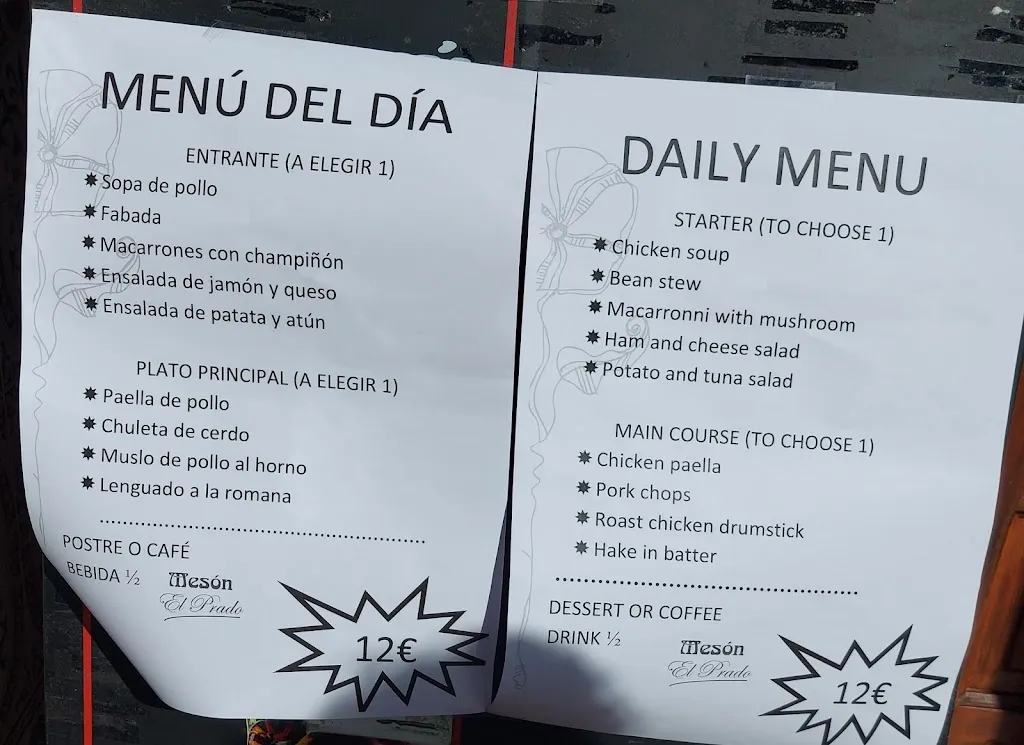 MENÚ DEL DÍA
ENTRANTE (A ELEGIR 1)
Sopa de pollo
Fabada
Macarrones con champiñón
Ensalada de jamón y queso
Ensalada de patata y atún
PLATO PRINCIPAL (A ELEGIR 1)
Paella de pollo
Chuleta de cerdo
Muslo de pollo al horno
Lenguado a la romana
POSTRE O CAFÉ
BEBIDA ½
Mesón
El Prado
12€
DAILY MENU
STARTER (TO CHOOSE 1)
Chicken soup
Bean stew
Macarronni with mushroom
Ham and cheese salad
Potato and tuna salad
MAIN COURSE (TO CHOOSE 1)
Chicken paella
Pork chops
Roast chicken drumstick
Hake in batter
DESSERT OR COFFEE
DRINK ½
Mesón
El Prado
12€